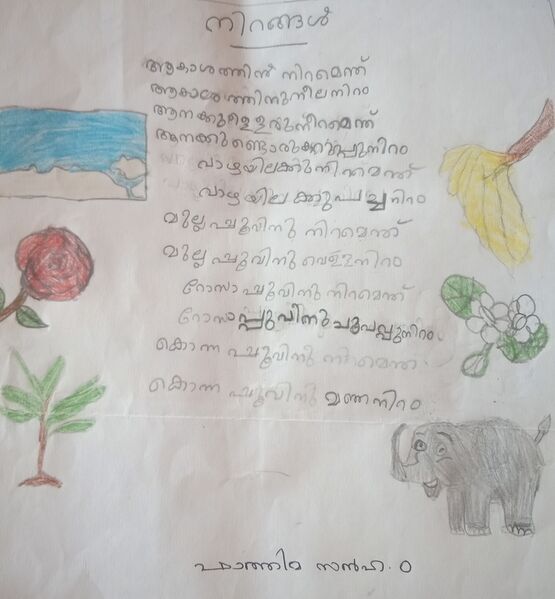 നിറങ്ങൾ
ആകാശത്തിന് നിറമെന്ത്
ആകാശത്തിനുനീലനിറം
ആനക്കുള്ളൊരുനിറമെന്ത്
ആനക്കുണ്ടൊരുകറുപ്പുനിറം
വാഴയിലക്കുനിറമെന്ത്
വാഴയിലക്കുപച്ചനിറം
മുല്ലപ്പൂവിനു നിറമെന്ത്
മുല്ലപ്പൂവിനു വെള്ളനിറം
റോസാപ്പൂവിനു നിറമെന്ത്
റോസാപ്പൂവിനു ചുവപ്പുനിറം
കൊന്നപ്പൂവിനു നിറമെന്ത്
കൊന്നപ്പൂവിനു മഞ്ഞനിറം
ഫാത്തിമ സൻഹ. 0